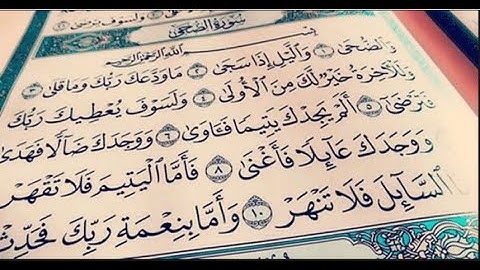 سُورَةُ الضُّحَى
بِسْمِ اللَّهِ الرَّحْمَٰنِ الرَّحِيمِ
وَالضُّحَىٰ ١ وَاللَّيْلِ إِذَا سَجَىٰ ٢ مَا وَدَّعَكَ رَبُّكَ وَمَا قَلَىٰ ٣
وَلَلْآخِرَةُ خَيْرٌ لَّكَ مِنَ الْأُولَىٰ ٤ وَلَسَوْفَ يُعْطِيكَ رَبُّكَ
فَتَرْضَىٰ ٥ أَلَمْ يَجِدْكَ يَتِيمًا فَآوَىٰ ٦ وَوَجَدَكَ ضَالًّا فَهَدَىٰ
وَوَجَدَكَ عَائِلًا فَأَغْنَىٰ ٨ فَأَمَّا الْيَتِيمَ فَلَا تَقْهَرْ
السَّائِلَ فَلَا تَنْهَرْ ١٠ وَأَمَّا بِنِعْمَةِ رَبِّكَ فَحَدِّثْ